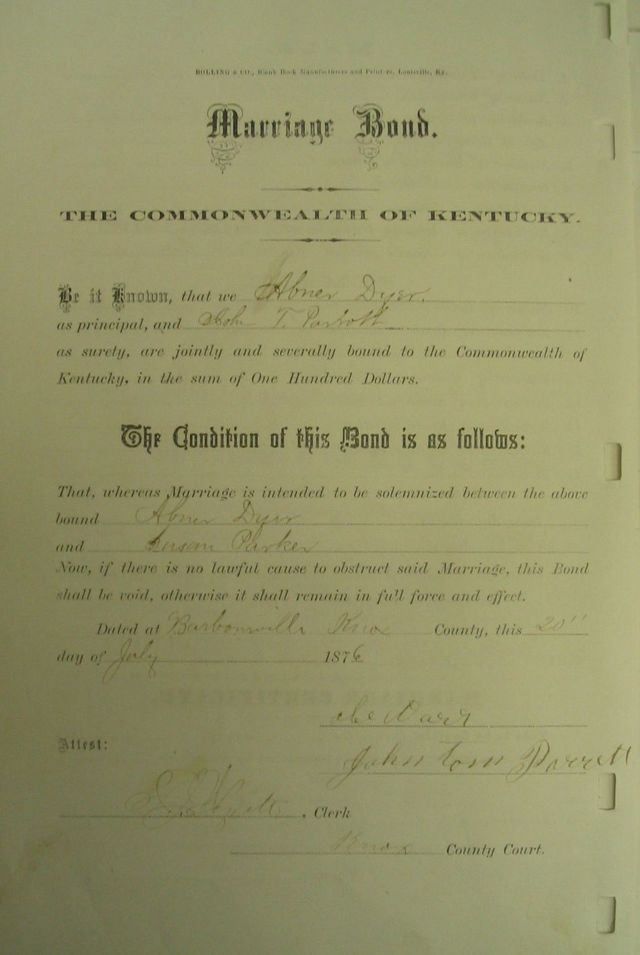 BOLLING & CO., Blank Book Manufacturers and Printers, Louisville, Ky.
Marriage Bond.
THE COMMONWEALTH OF KENTUCKY.
Be it Known, that we Abner Dyer.
as principal, and John T. Parrott
as surety, are jointly and severally bound to the Commonwealth of
Kentucky, in the sum of One Hundred Dollars.
The Condition of this Bond is as follows:
That, whereas Marriage is intended to be solemnized between the above
bound Abner Dyer
and Parker
Now, if there is no lawful cause to obstruct said Marriage, this Bond
shall be void, otherwise it shall remain in full force and effect.
Dated at Barbourville Knox County, this 20"
day of July 1876
Attest:
John tom Parrett
Clerk
Knox County Court.